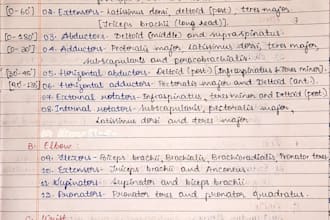 [0-60] 02. Extensors- Latissimus dorsi, deltoid (post), teres major,
[Triceps brachii (long head)].
[0-180] 03. Abductors- Deltoid (middle) and supraspinatus
[0-30] 04. Adductors- Pectoralis major, latissimus dorsi, teres major,
Subscapularis and coracobrachialis.
05. Horizontal abductors- Deltoid (Post) [Infraspinatus & teres minor].
06. Horizontal adductors- Pectoralis major and Deltoid (ant.)
07. External rotators- Infraspinatus, teres minor and Deltoid (post)
08. Internal rotators- Subscapularis, pectoralis major,
Latissimus dorsi and teres major.
B. Elbow:
09. Flexors- Biceps brachii, Brachialis, Brachioradialis, Pronator teres.
10. Extensors- Triceps brachii and Anconeus.
11. Supinators- Supinator and biceps brachii
12. Pronators- Pronator teres and pronator quadratus.